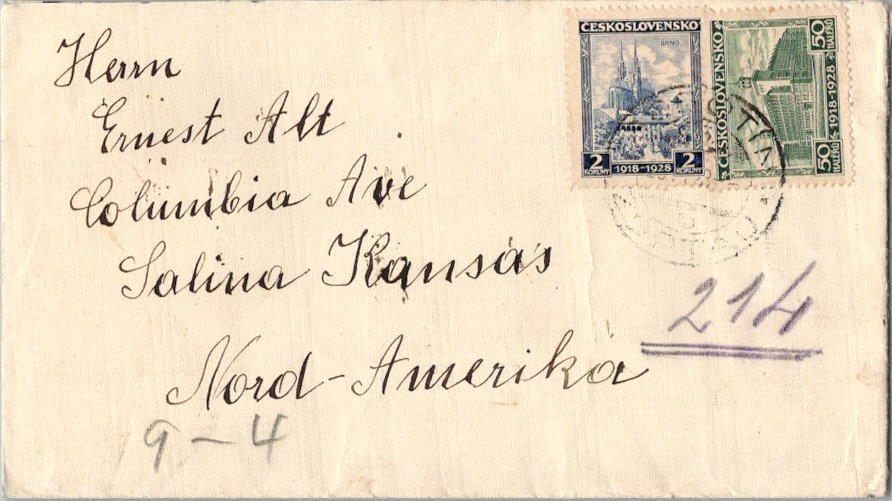 Herrn
Ernest Alt
Columbia Ave
Salina Kansas
Nord-Amerika
9-4
214
ČESKOSLOVENSKO
BRNO
2 KORUNY
2 KORUNY
1918-1928
ČESKOSLOVENSKO
1918-1928
50 HALÉŘŮ
50 HALÉŘŮ